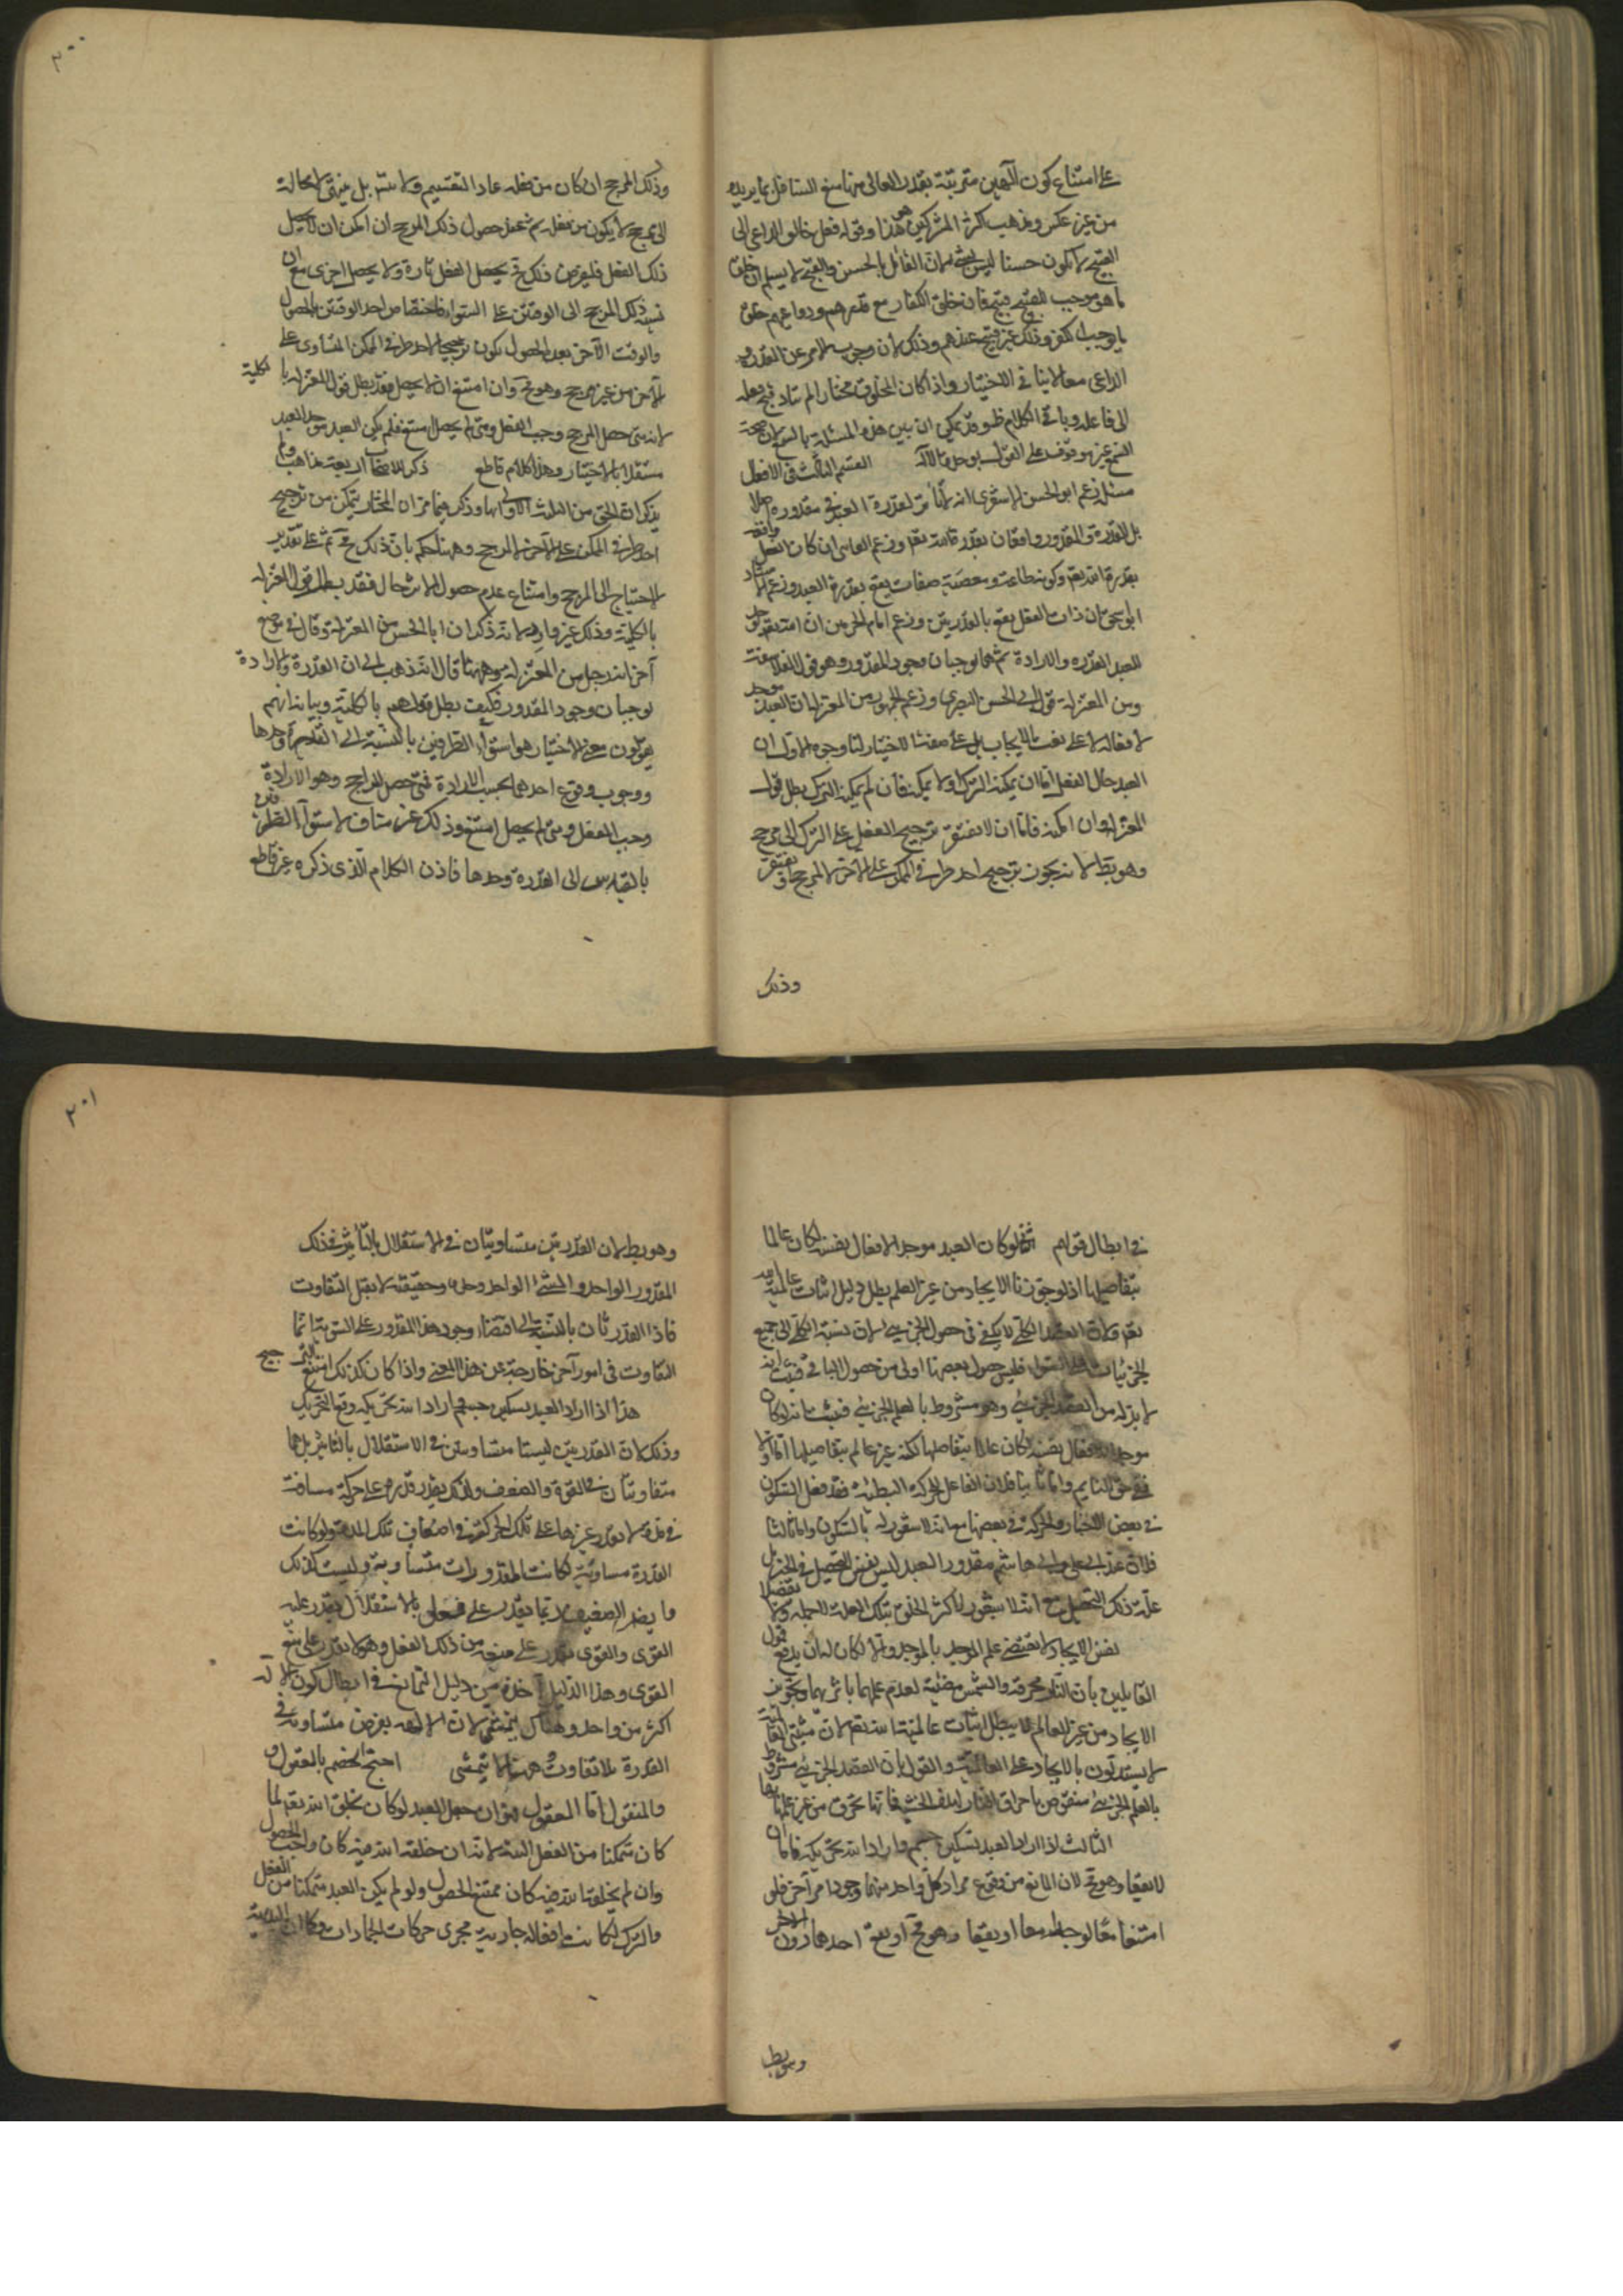 على امتناع كون الآلهين مترتبة يقدر العالى منها منع السافل بما يريده
من غير عكس ومذهب اكثر المشركين هو هذا وقوله فعل خالق الداعى الى
القبيح لا يكون حسنا ليس بشئ لان القائل بالحسن والقبح لا يسلم ان خلق
ما هو موجب للقبيح قبيح فان خلق الكفار مع قدرهم ودواعيهم خلق
ما يوجب الكفر وذلك غير قبيح عندهم وذلك لان وجوب الامر عن القدرة و
الداعى معا لا ينافى الاختيار واذا كان المخلوق مختارا لم يتأد قبح فعله
الى فاعله وباقى الكلام ظ وقد يمكن ان يبين هذه المسئلة بالسمع لان صحة
السمع غير موقوف على القول بوحدة الاله القسم الثالث فى الافعال
مسئلة زعم ابو الحسن الاشعرى انه لا تأثير لقدرة العبد فى مقدوره اصلا
بل القدرة والمقدور واقعان بقدرة الله تعم وزعم القاضى ان ذات الفعل واقعة
بقدرة الله تعم وكونه طاعة ومعصية صفات يقع بقدرة العبد وزعم الاستاد
ابو اسحق ان ذات الفعل تقع بالقدرتين وزعم امام الحرمين ان الله تعم خلق
للعبد القدرة والارادة ثم هما يوجبان وجود المقدور وهو قول الفلاسفة
ومن المعتزلة قول ابى الحسن البصرى وزعم الجمهور من المعتزلة ان العبد موجد
لافعاله لا على نعت الايجاب بل على صفة الاختيار لنا وجوه الاول ان
العبد حال الفعل اما ان يمكنه الترك او لا يمكنه فان لم يمكنه الترك بطل قول
المعتزلة وان امكنه فاما ان لا يفتقر ترجيح الفعل على الترك الى مرجح
وهو بط لانه تجويز ترجيح احد طرفى الممكن على الآخر لا لمرجح او يفتقر
وذلك
٢٠٠
وذلك المرجح ان كان من فعله عاد التقسيم ولا يتسلسل بل ينتهى لا محالة
الى مرجح لا يكون من فعله ثم عند حصول ذلك المرجح ان امكن ان لا يحصل
ذلك الفعل فلنفرض ذلك فح يحصل الفعل تارة ولا يحصل اخرى مع ان
نسبة ذلك المرجح الى الوقتين على السواء فاختصاص احد الوقتين بالحصول
والوقت الآخر بعدم الحصول يكون ترجيحا لاحد طرفى الممكن المتساوى على
الآخر من غير مرجح وهو مح وان امتنع ان لا يحصل فقد بطل قول المعتزلة بالكلية
لانه متى حصل المرجح وجب الفعل ومتى لم يحصل امتنع فلم يكن العبد موجد العبد
مستقلا بالاختيار وهذا كلام قاطع ذكر للاصحاب اربعة مذاهب ولم
يذكر ان الحق من الثلث الاوالى ايها وذكر فيما مر ان المختار يتمكن من ترجيح
احد طرفى الممكن على الآخر لا لمرجح وههنا حكم بان ذلك مح ثم على تقدير
الاحتياج الى المرجح وامتناع عدم حصول الاثر حال فقد بطل قول المعتزلة
بالكلية وذلك غير وارد لانه ذكر ان ابا الحسين من المعتزلة وقال فى موضع
آخر انه رجل من المعتزلة وههنا قال انه ذهب الى ان القدرة والارادة
يوجبان وجود المقدور فكيف بطل قولهم بالكلية وبيانه انهم
يقولون معنى الاختيار هو استواء الطرفين بالنسبة الى القدرة وحدها
ووجوب وقوع احدهما بحسب الارادة فمتى حصل المرجح وهو الارادة
وجب الفعل ومتى لم يحصل امتنع وذلك غير مناف لاستواء الطرفين
بالقياس الى القدرة وحدها فاذن الكلام الذى ذكره غير قاطع
فى ابطال قولهم لو كان العبد موجدا لافعال نفسه لكان عالما
بتفاصيلها اذ لو جوزنا الايجاد من غير العلم بطل دليل اثبات عالمية الله
تعم ولان القصد الكلى لا يكفى فى حصول الجزئى لان نسبة الكلى الى جميع
الجزئيات على السواء فليس حصول بعضها اولى من حصول الباقى فثبت انه
لا بد له من القصد الجزئى وهو مشروط بالعلم الجزئى فثبت انه لو كان
موجدا لافعال نفسه لكان عالما بتفاصيلها لكنه غير عالم بتفاصيلها اما اولا
ففى حق النايم واما ثانيا فلان الفاعل للحركة البطيئة قد فعل السكون
فى بعض الاحياز والحركة فى بعضها مع انه لا شعور له بالسكون واما ثالثا
فلان عند ابى على وابى هاشم مقدور العبد ليس نفس التحصيل فى الحيز بل
علة ذلك التحصيل مع انه لا شعور لاكثر الخلق بتلك العلة لا جملة ولا تفصيلا
نفس الايجاد لا يقتضى علم الموجد بالموجد والا لكان لنا ان ندفع قول
القائلين بان النار محرقة والشمس مضيئة لعدم علمهما باثرهما وتجويز
الايجاد من غير العالم لا يبطل اثبات عالمية الله تعم لان مثبتى العالمية
لا يستدلون بالايجاد على العالمية والقول بان القصد الجزئى مشروط
بالعلم الجزئى منقوض باحراق النار لهذه الخشبة فانها تحرق من غير علمها بها
الثالث اذا اراد العبد تسكين جسم واراد الله تحريكه فاما ان
لا يقعا وهو مح لان المانع من وقوع مراد كل واحد منهما وجود مراد آخر فلو
امتنعا معا لوجدا معا او يقعا وهو مح او يقع احدهما دون الآخر
وهو بط
٢٠١
وهو بط لان القدرتين متساويتان فى الاستقلال بالتأثير فى ذلك
المقدور الواحد والشئ الواحد وحدة حقيقية لا يقبل التفاوت
فاذا القدرتان بالنسبة الى اقتضاء وجود هذا المقدور على السوية انما
التفاوت فى امور آخر خارجة عن هذا المعنى واذا كان كذلك امتنع الترجيح
هذا اذا اراد العبد تسكين جسم اراد الله تحريكه وقع التحريك
وذلك لان القدرتين ليستا متساويتين فى الاستقلال بالتأثير بل هما
متفاوتتان فى القوة والضعف ولذلك يقدر قادر على حركة مسافة
فى مدة لا يقدر غيرها على تلك الحركة فى اضعاف تلك المدة ولو كانت
القدرة مساوية لكانت المقدورات متساوية وليست كذلك
القوى والقوى يقدر على منعه من ذلك الفعل وهو لا يقدر على منع
القوى وهذا الدليل اخذه من دليل التمانع فى ابطال كون الاله
اكثر من واحد وهناك يتمشى لان الالهة يفرض متساوية فى
القدرة بلا تفاوت وههنا لا يتمشى احتج الخصم بالمعقول و
والمنقول اما المعقول فهو ان العبد لو كان بخلق الله تعم لما
كان متمكنا من الفعل البتة لانه ان خلقه الله فيه كان واجب الحصول
وان لم يخلقه الله فيه كان ممتنع الحصول ولو لم يكن العبد متمكنا من الفعل
والترك لكانت افعاله جارية مجرى حركات الجمادات وكما ان البديهة